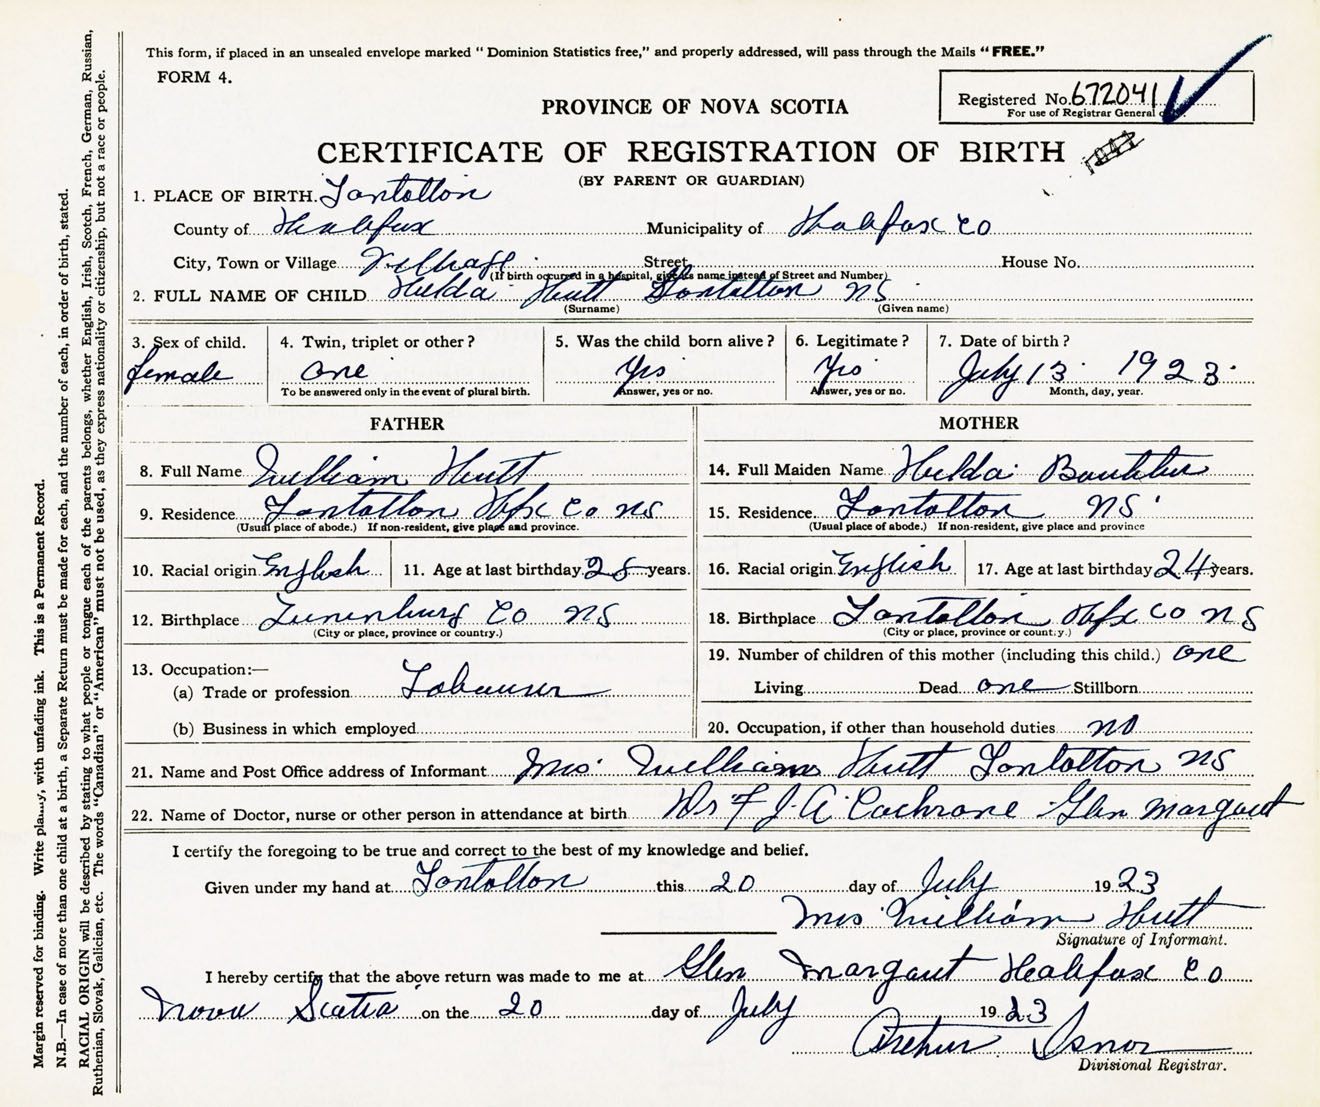 This form, if placed in an unsealed envelope marked “ Dominion Statistics free,” and properly addressed, will pass through the Mails “ FREE.”
FORM 4.
Registered No. 672041
For use of Registrar General
PROVINCE OF NOVA SCOTIA
CERTIFICATE OF REGISTRATION OF BIRTH
(BY PARENT OR GUARDIAN)
1. PLACE OF BIRTH. Tantallon
County of Halifax Municipality of Halifax Co
City, Town or Village Village Street House No.
(If birth occurred in a hospital, give its name instead of Street and Number)
2. FULL NAME OF CHILD Hulda Hutt Tantallon NS
(Surname) (Given name)
3. Sex of child. 4. Twin, triplet or other ? 5. Was the child born alive ? 6. Legitimate ? 7. Date of birth ?
female one Yis Yis July 13 1923
To be answered only in the event of plural birth. Answer, yes or no. Answer, yes or no. Month, day, year.
FATHER MOTHER
8. Full Name William Hutt 14. Full Maiden Name Hulda
9. Residence Tantallon Hfx Co NS 15. Residence Tantallon NS
(Usual place of abode.) If non-resident, give place and province. (Usual place of abode.) If non-resident, give place and province
10. Racial origin English 11. Age at last birthday years. 16. Racial origin English 17. Age at last birthday 24 years.
12. Birthplace Lunenburg Co NS 18. Birthplace Tantallon Hfx Co NS
(City or place, province or country.) (City or place, province or country.)
13. Occupation:— 19. Number of children of this mother (including this child.) one
(a) Trade or profession Labourer Living Dead one Stillborn
(b) Business in which employed 20. Occupation, if other than household duties no
21. Name and Post Office address of Informant Mrs William Hutt Tantallon NS
22. Name of Doctor, nurse or other person in attendance at birth Dr F J. A. Cochrane Glen Margaut
I certify the foregoing to be true and correct to the best of my knowledge and belief.
Given under my hand at Tantallon this 20 day of July 1923
Mrs William Hutt
Signature of Informant.
I hereby certify that the above return was made to me at Glen Margaut Halifax Co
Nova Scotia on the 20 day of July 1923
Arthur Isnor
Divisional Registrar.
Margin reserved for binding. Write plainly, with unfading ink. This is a Permanent Record.
N.B.—In case of more than one child at a birth, a Separate Return must be made for each, and the number of each, in order of birth, stated.
RACIAL ORIGIN will be described by stating to what people or tongue each of the parents belongs, whether English, Irish, Scotch, French, German, Russian,
Ruthenian, Slovak, Galician, etc. The words “Canadian” or “American” must not be used, as they express nationality or citizenship, but not a race or people.